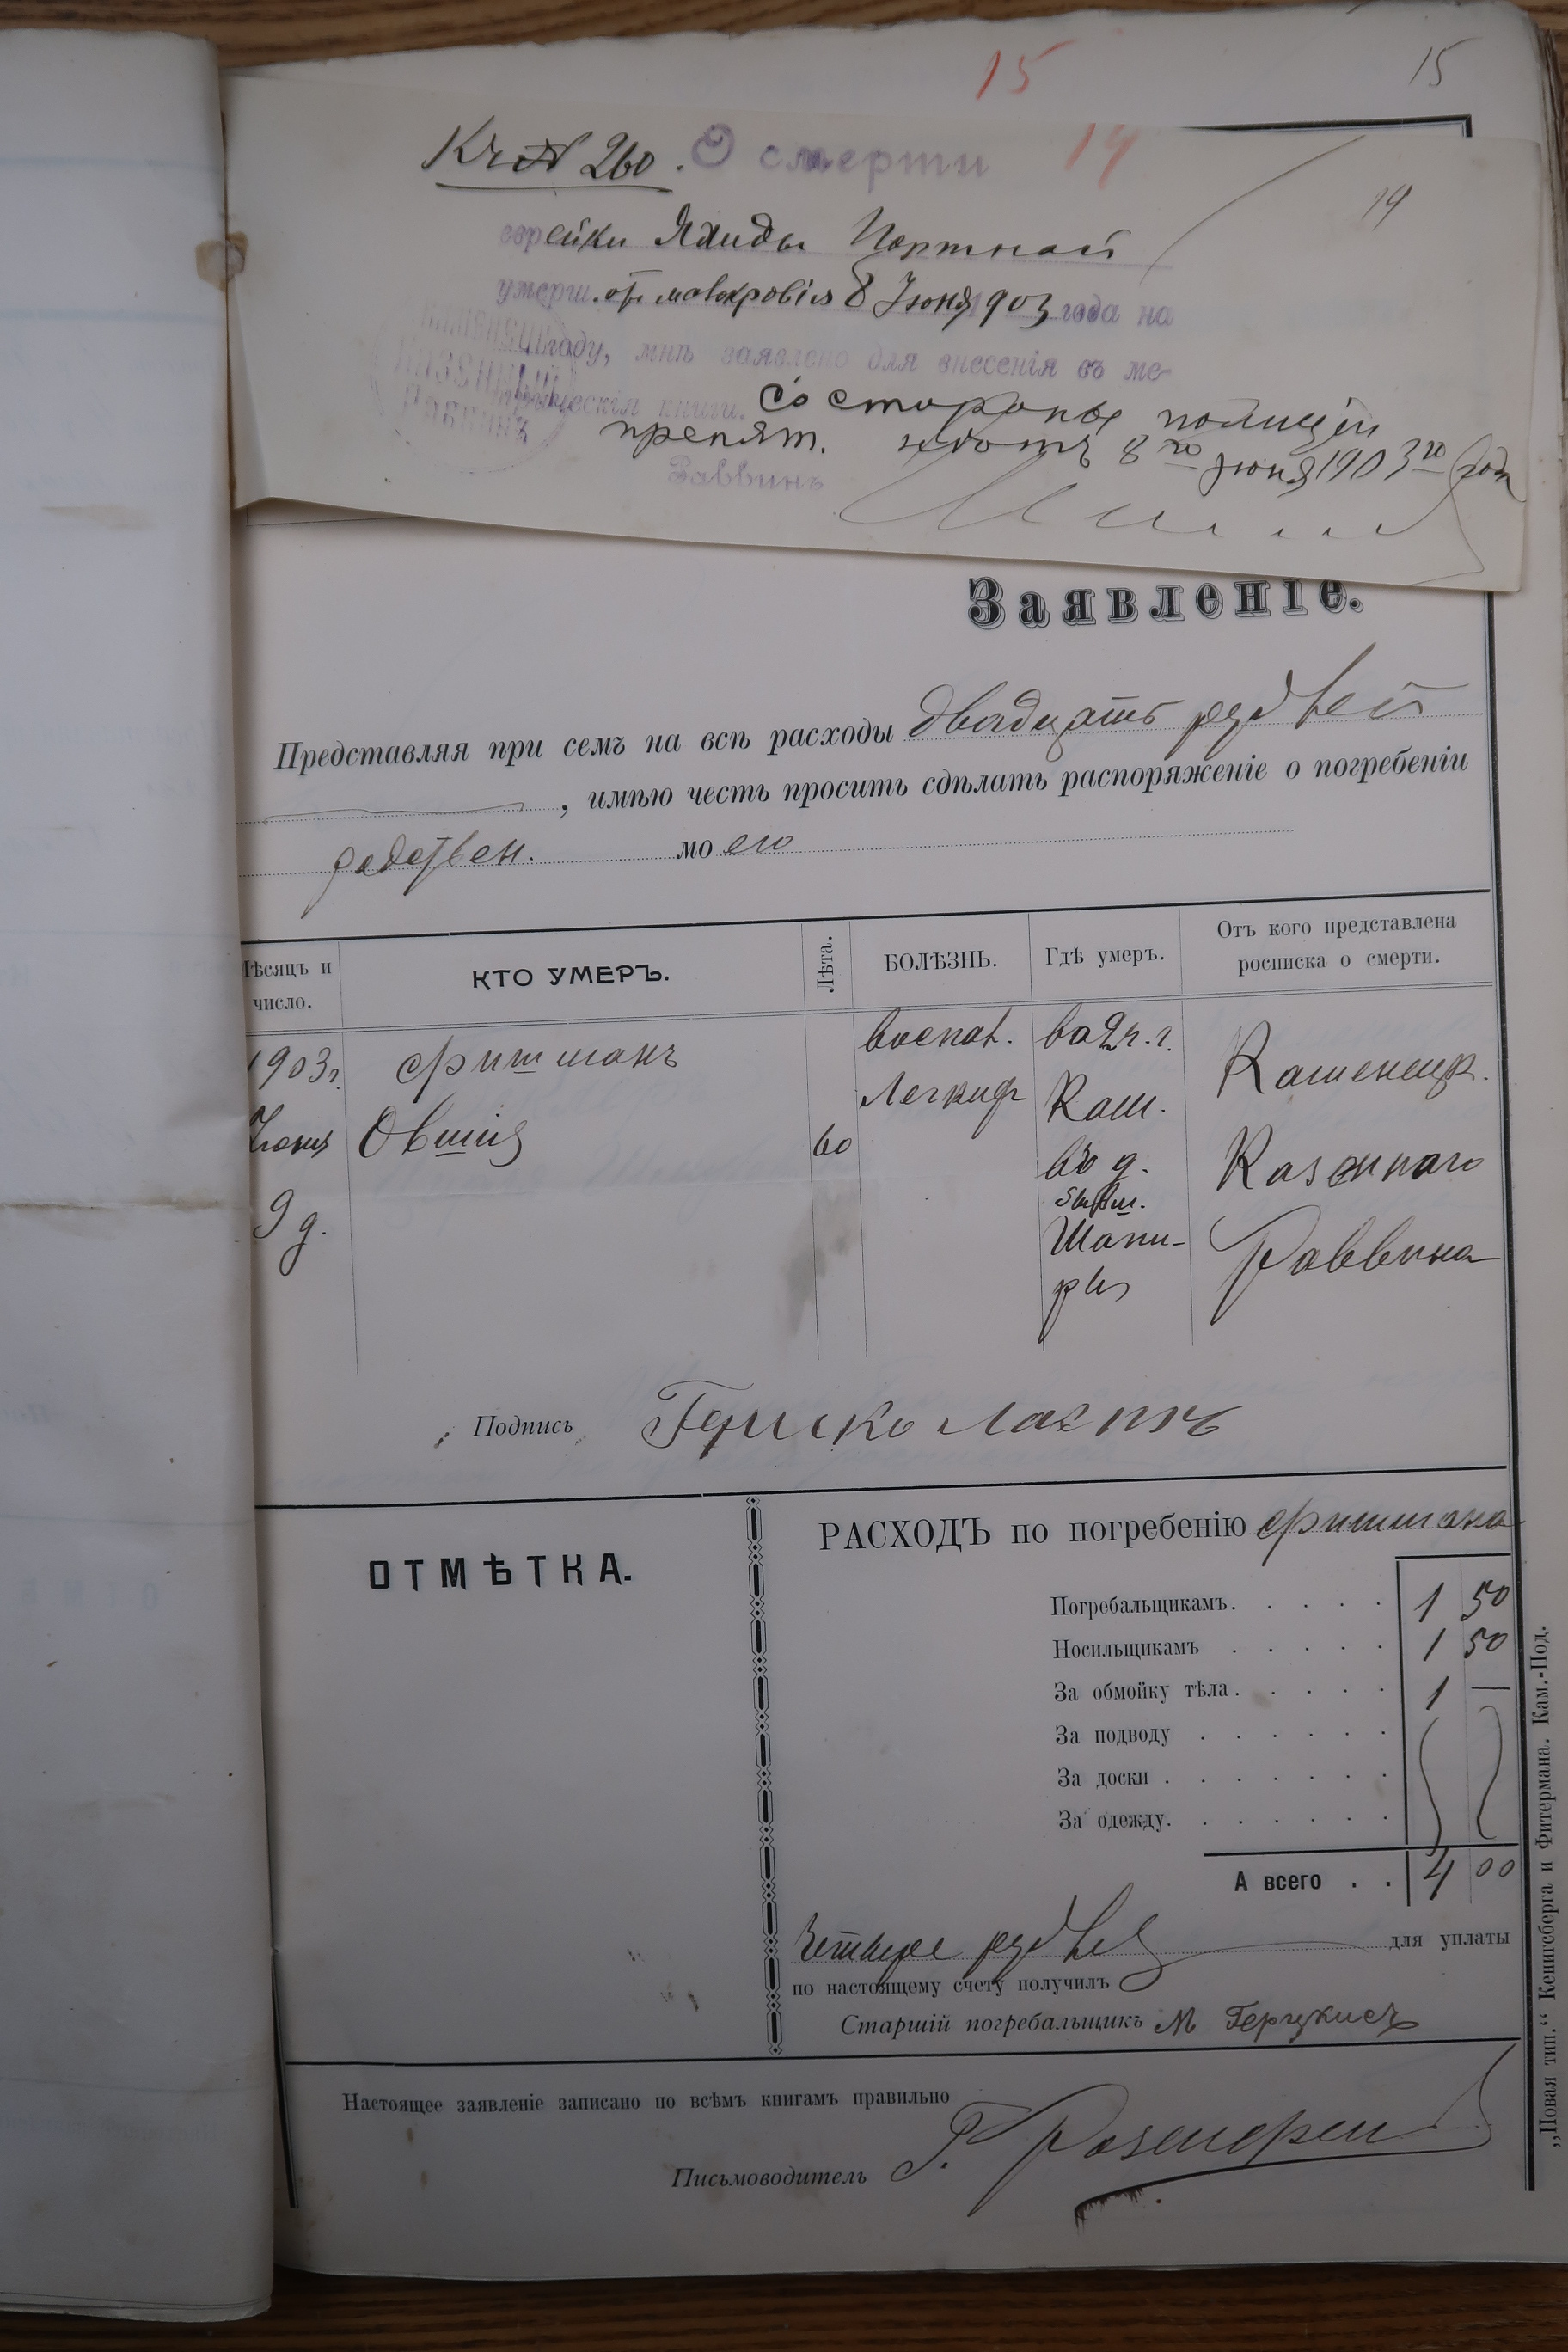 15
15
Кч № 260. О смерти 14
14
еврейки Яхиды Портной
умерш. от малокровія 8 Іюня 1903 года на
году, мнѣ заявлено для внесенія въ ме-
трическія книги. Со стороны полиціи
КАЗЕННЫЙ
Раввинъ
препят. нѣтъ 8го іюня 1903го года
Раввинъ
Заявленіе.
Представляя при семъ на всѣ расходы двадцать рублей
, имѣю честь просить сдѣлать распоряженіе о погребеніи
родствен. моего
Мѣсяцъ и число.
КТО УМЕРЪ.
Лѣта.
БОЛѢЗНЬ.
Гдѣ умеръ.
Отъ кого представлена росписка о смерти.
1903г. Фитманъ воспал. Каменецк.
Іюня Легкихъ Кам.
60 въ д. Казеннаго
9 д. Шапи- Раввина
ры
Подпись
ОТМѢТКА.
РАСХОДЪ по погребенію Фитмана
Погребальщикамъ. 1 50
Носильщикамъ 1 50
За обмойку тѣла. 1 —
За подводу
За доски
За одежду.
А всего . . 4 00
Четыре рубля для уплаты
по настоящему счету получилъ
Старшій погребальщикъ М Герцкисъ
Настоящее заявленіе записано по всѣмъ книгамъ правильно
Письмоводитель
„Новая тип.“ Кенигсберга и Фитермана. Кам.-Под.